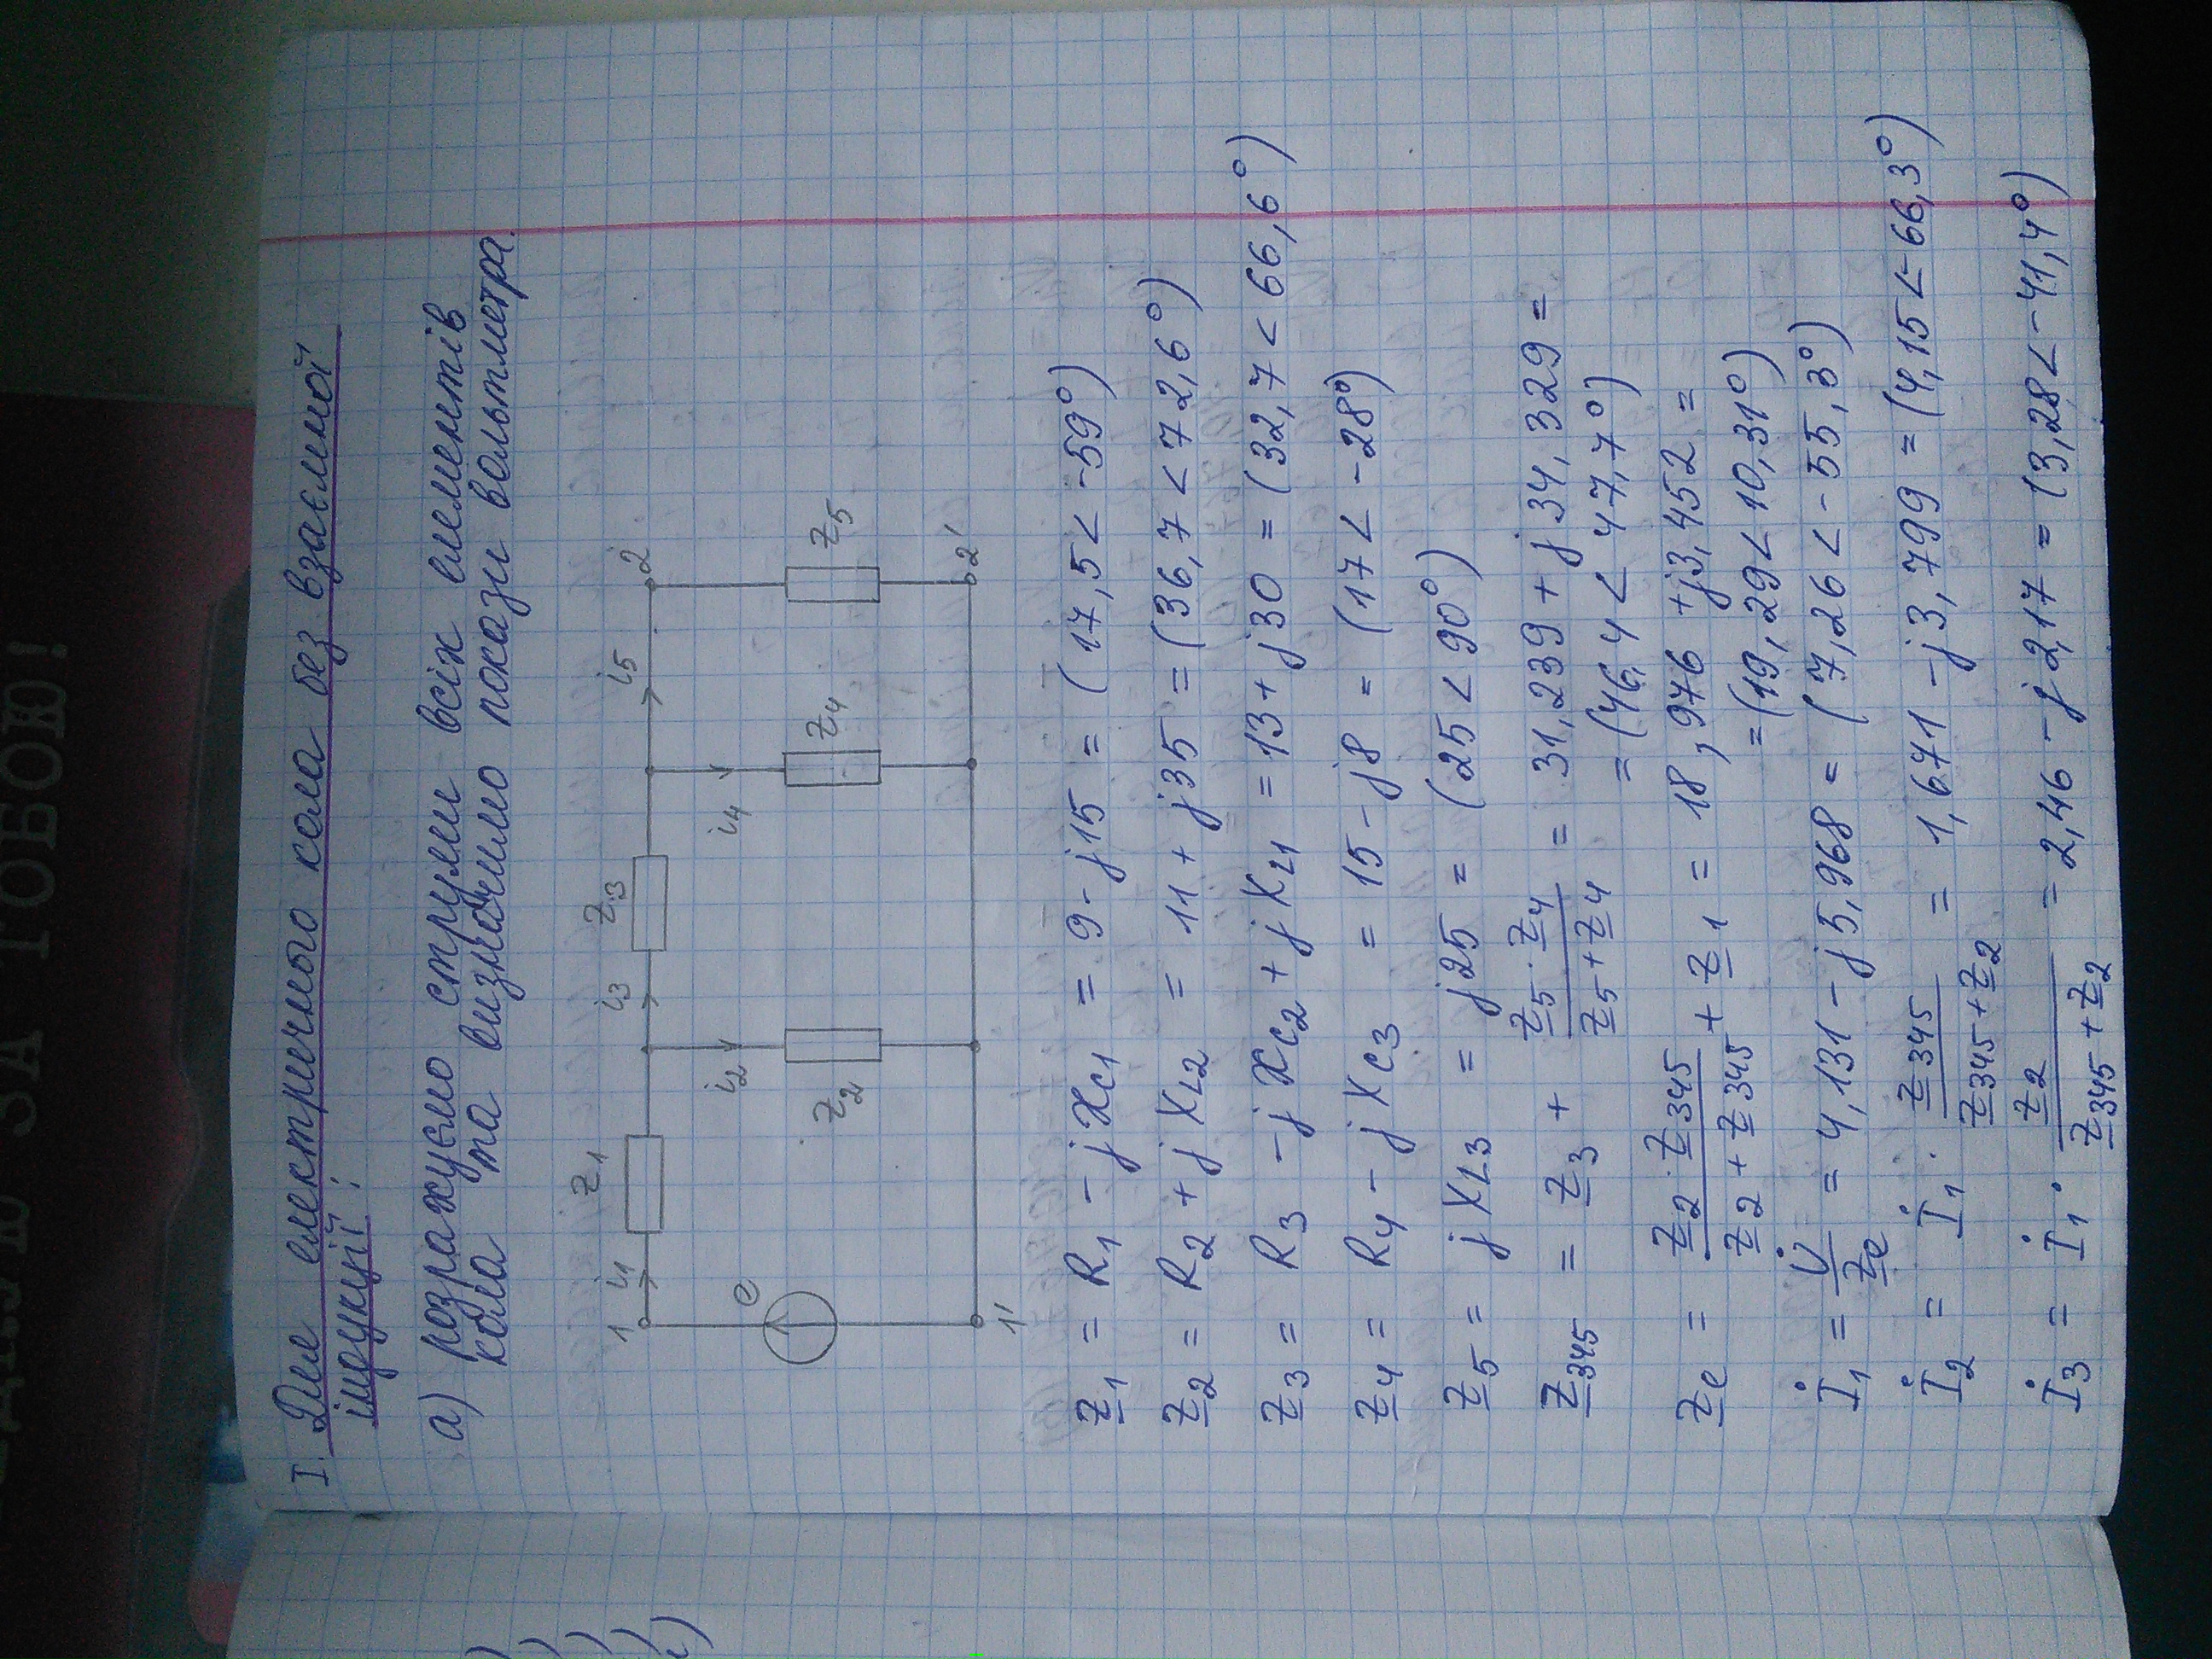 ЗА ТОБОЮ!
I. Для електричного кола без взаємної
індукції:
а) розрахуємо струми всіх елементів
кола та визначимо покази вольтметра.
1 i1 Z1 i3 Z3 i5 2
e i2 Z2 i4 Z4 Z5
1' 2'
Z1 = R1 - jXC1 = 9 - j15 = (17,5 < -59°)
Z2 = R2 + jXL2 = 11 + j35 = (36,7 < 72,6°)
Z3 = R3 - jXC2 + jXL1 = 13 + j30 = (32,7 < 66,6°)
Z4 = R4 - jXC3 = 15 - j8 = (17 < -28°)
Z5 = jXL3 = j25 = (25 < 90°)
Z345 = Z3 + Z5·Z4 / Z5+Z4 = 31,239 + j34,329 =
= (46,4 < 47,7°)
Ze = Z2·Z345 / Z2+Z345 + Z1 = 18,976 + j3,452 =
= (19,29 < 10,31°)
İ1 = U̇ / Ze = 4,131 - j5,968 = (7,26 < -55,3°)
İ2 = İ1 · Z345 / Z345+Z2 = 1,671 - j3,799 = (4,15 < -66,3°)
İ3 = İ1 · Z2 / Z345+Z2 = 2,46 - j2,17 = (3,28 < -41,4°)